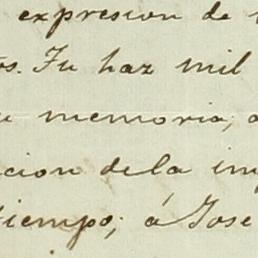 expresion de
os. Tu haz mil
memoria, a
cion dela im
tiempo; á Jose